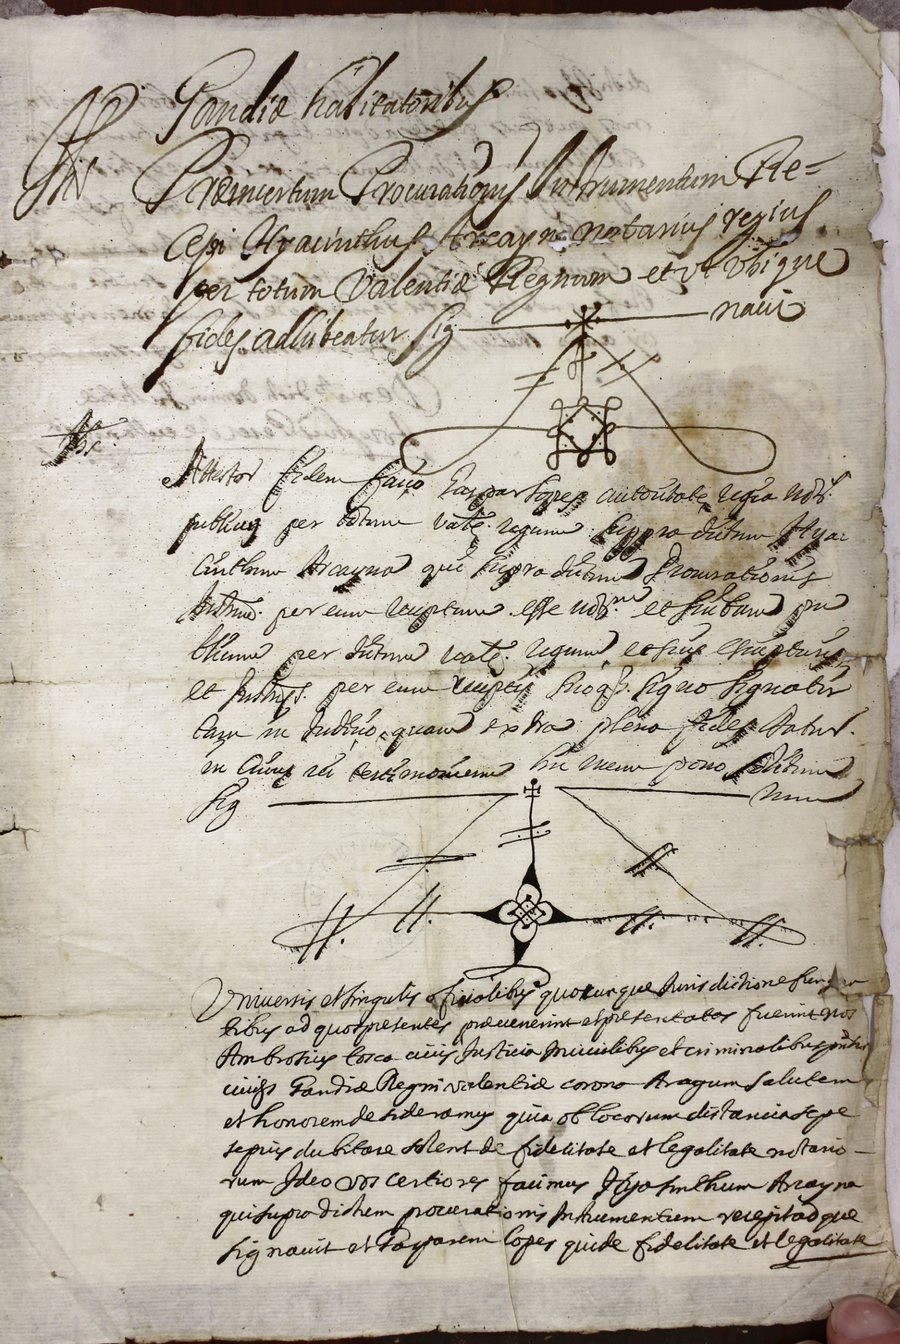 Gandiæ habitatoribus
Præincertum Procurationis Instrumentum Re=
cepi Hyacinthus Arcayna notarius regius
per totum Valentiæ Regnum et ut Ubique
fides adhibeatur. Sig naui
Attestor fidem facio Gaspar lopes autoritate regia notrs.
publicus per totum valtē. regnum. suppra dictum Hya
cinthum Arcayna qui supra dictum Procurationis
Instrum. per eum receptum esse notr.ium et scribam pu
blicum per dictum valtē. regnum et suis scripturis
et Instrīs. per eum receptis suoqs. signo signatis
tam in Juditio, quam extra plena fides datur.
in cuius rei testimonium hic meum pono solitum
Sig num
Universis et singulis offitialibus quocunque Jurisdictione fungen
tibus ad quos presentes prævenerint et presentatas fuerint nos
Ambrosius tosca civis Justicia in civilibus et criminalibus
civits Gandiæ Regni valentiæ corona Aragum salutem
et honorem desideramus quia ob locorum distancia sepe
sepius dubitare solent de fidelitate et legalitate notario-
rum Ideo vos certiores facimus Hyasinthum Arcayna
qui supra dictum procurationis Instrumentum recepit ad que
signavit et Gasparem lopes quide fidelitate et legalitate